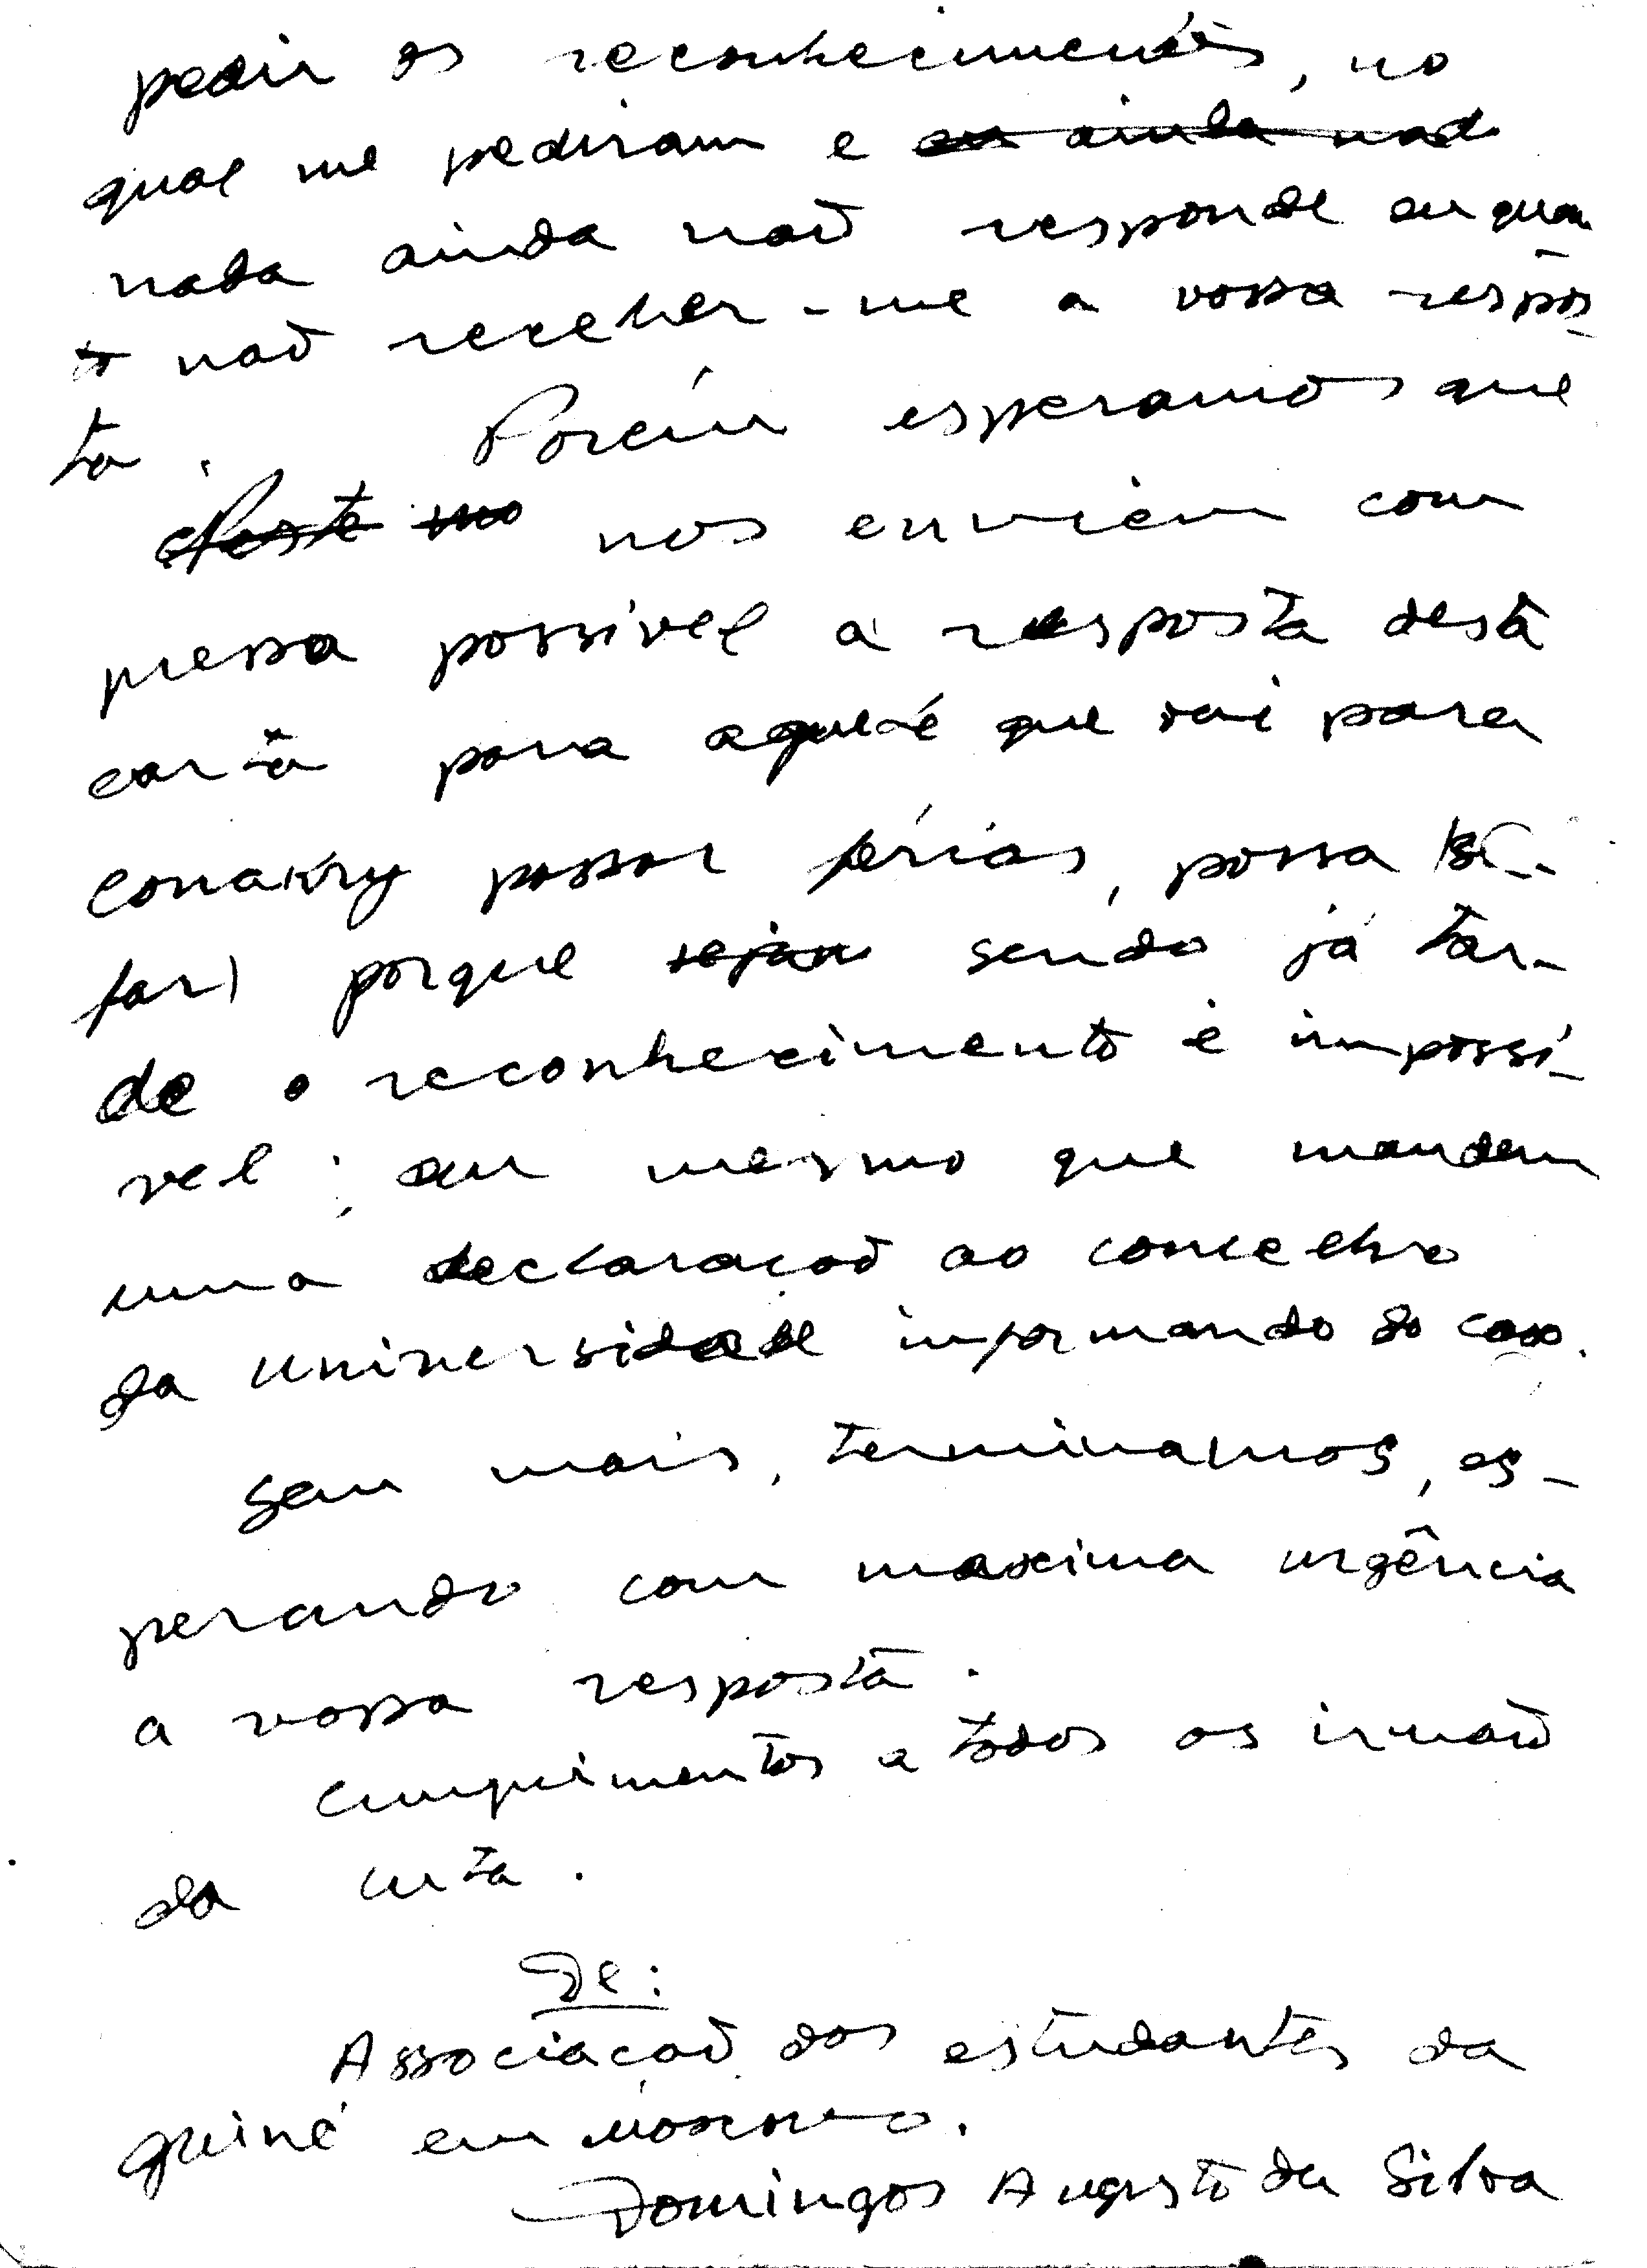 pedir os reconhecimentos, no
qual me pediram e eu ainda nad
nada ainda naõ responde enquan
to naõ receber-me a vossa respos-
ta. Porém esperamos que
Neste mo nos enviem com
pressa possível a resposta desta
carta para aquele que vai para
Conakry passar férias, possa
porque sejam sendo já tar-
de o reconhecimento é impossí-
vel; ou mesmo que mandem
uma declaraçaõ ao concelho
da Universidade informando do caso.
Sem mais, terminamos, es-
perando com maxima urgência
a vossa resposta.
Cumprimentos a todos os irmaõ
da luta.
De:
Associaçaõ dos estudantes da
guiné em Moscovo.
Domingos Augusto da Silva